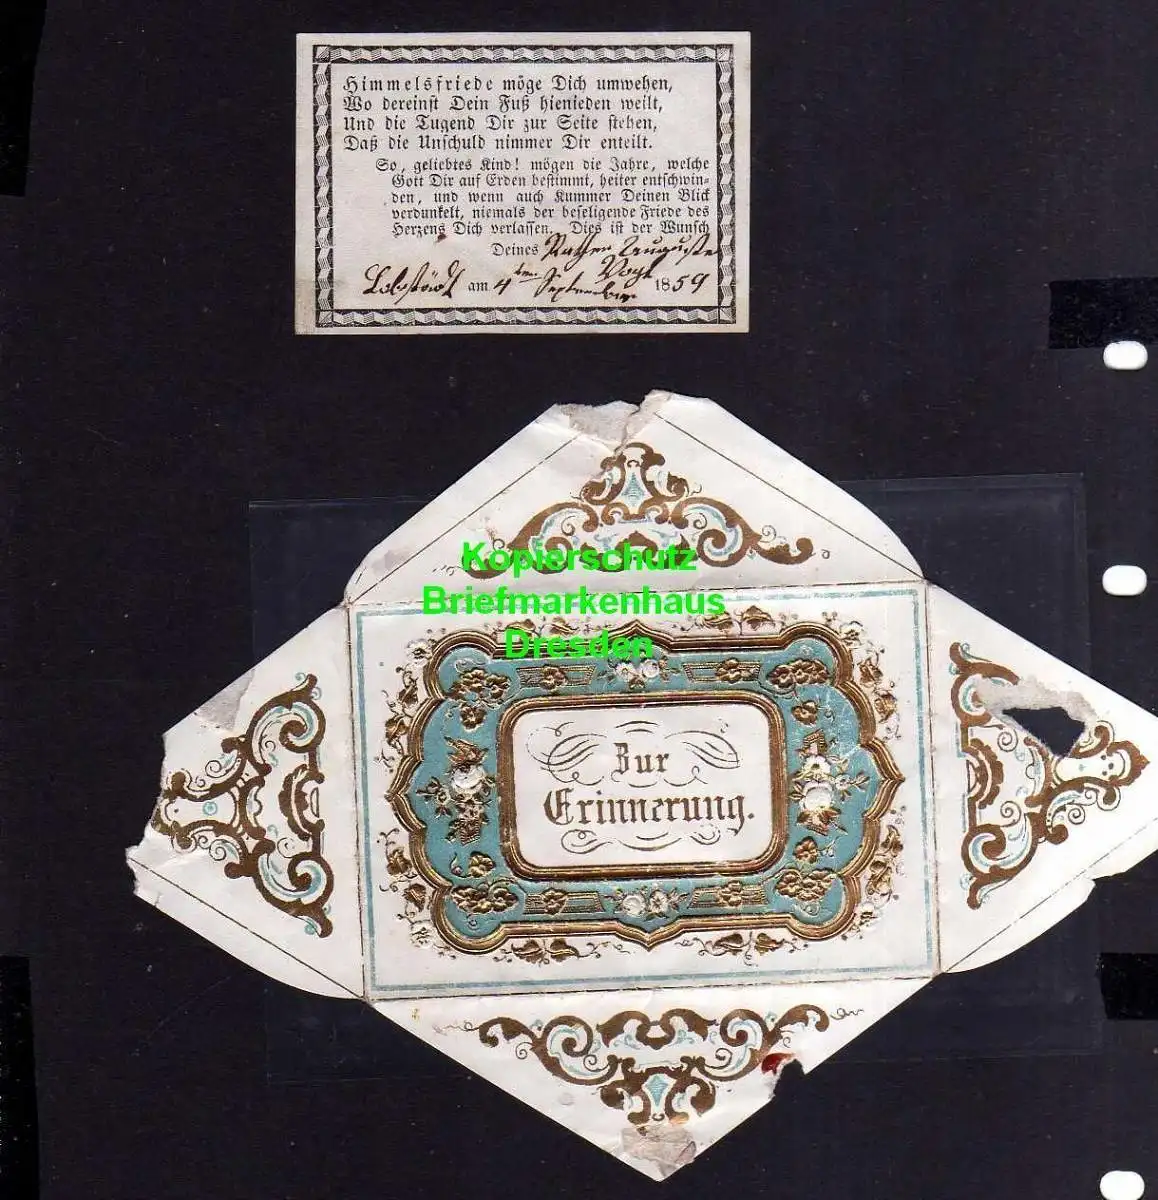 Himmelsfriede möge Dich umwehen,
Wo dereinst Dein Fuß hienieden weilt,
Und die Tugend Dir zur Seite stehen,
Daß die Unschuld nimmer Dir enteilt.
So, geliebtes Kind! mögen die Jahre, welche
Gott Dir auf Erden bestimmt, heiter entschwin-
den, und wenn auch Kummer Deinen Blick
verdunkelt, niemals der beseligende Friede des
Herzens Dich verlassen. Dies ist der Wunsch
Deines Pathen Auguste
Vogt
Lobstädt am 4ten September 1859
Kopierschutz
Briefmarkenhaus
Dresden
Zur
Erinnerung.